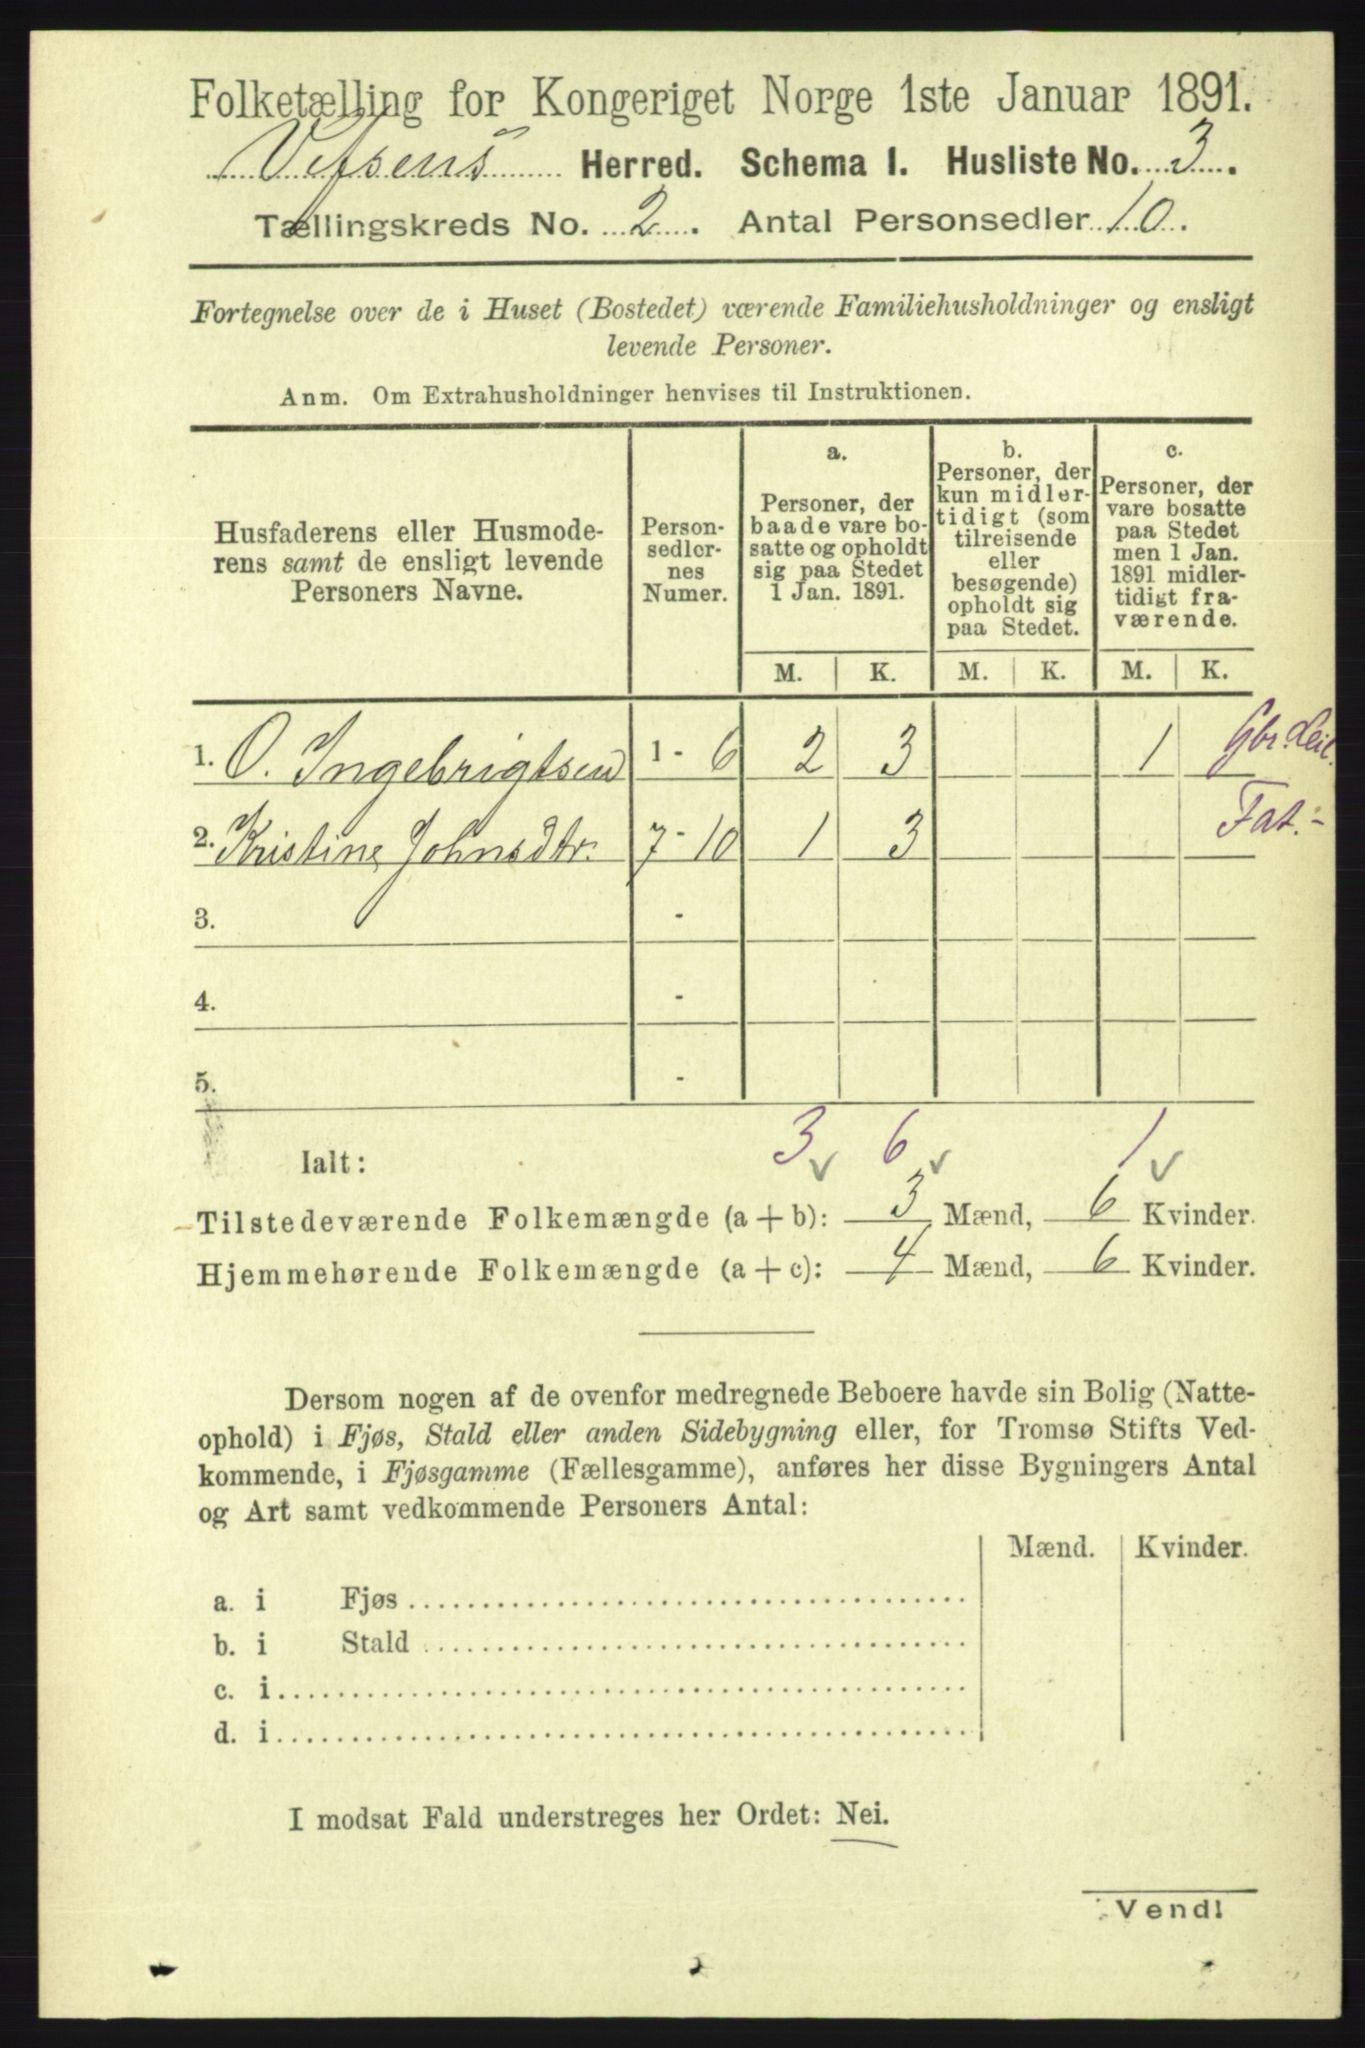 Folketælling for Kongeriget Norge 1ste Januar 1891.
Vefsens Herred. Schema I. Husliste No. 3.
Tællingskreds No. 2. Antal Personsedler 10.
Fortegnelse over de i Huset (Bostedet) værende Familiehusholdninger og ensligt
levende Personer.
Anm. Om Extrahusholdninger henvises til Instruktionen.
Husfaderens eller Husmode-
rens samt de ensligt levende
Personers Navne.
Person-
sedler-
nes
Numer.
a.
Personer, der
baade vare bo-
satte og opholdt
sig paa Stedet
1 Jan. 1891.
b.
Personer, der
kun midler-
tidigt (som
tilreisende
eller
besøgende)
opholdt sig
paa Stedet.
c.
Personer, der
vare bosatte
paa Stedet
men 1 Jan.
1891 midler-
tidigt fra-
værende.
M. K. M. K. M. K.
1. O. Ingebrigtsen 1 - 6 2 3 1 Gbr. Leil.
2. Kristine Johnsdtr. 7 - 10 1 3 Fat. -
3. -
4. -
5. -
3 6 1
Ialt:
Tilstedeværende Folkemængde (a + b): 3 Mænd, 6 Kvinder.
Hjemmehørende Folkemængde (a + c): 4 Mænd, 6 Kvinder.
Dersom nogen af de ovenfor medregnede Beboere havde sin Bolig (Natte-
ophold) i Fjøs, Stald eller anden Sidebygning eller, for Tromsø Stifts Ved-
kommende, i Fjøsgamme (Fællesgamme), anføres her disse Bygningers Antal
og Art samt vedkommende Personers Antal:
Mænd. Kvinder.
a. i Fjøs
b. i Stald
c. i
d. i
I modsat Fald understreges her Ordet: Nei.
Vend!